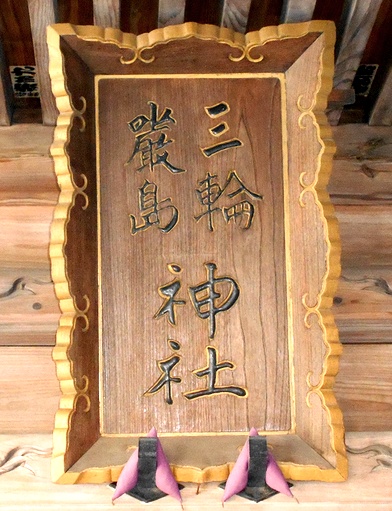 三輪
巌島
神社